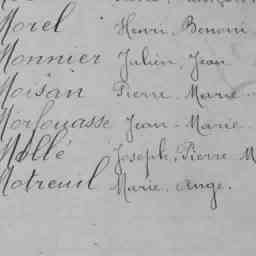 Morel Henri, Benoni
Monnier Julien, Jean
Moisan Pierre-Marie
Morfouasse Jean-Marie
Mollé Joseph, Pierre M
Motreuil Marie, Ange.